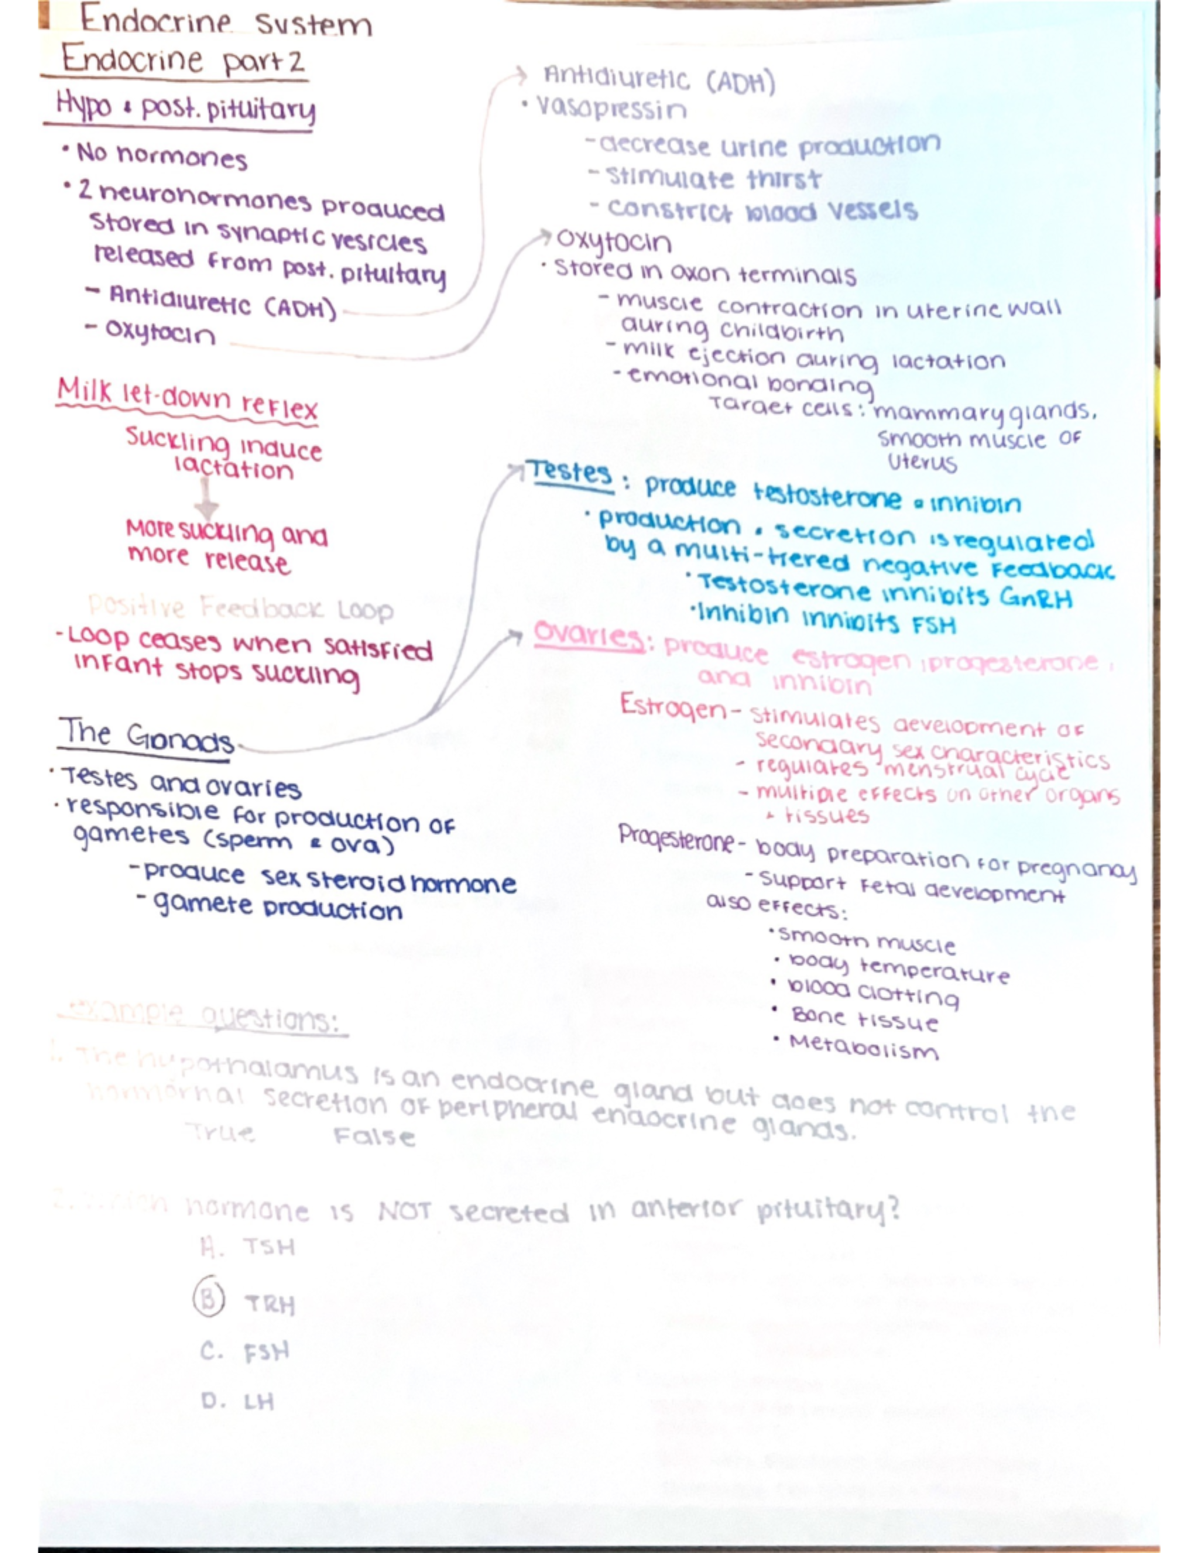 Endocrine System
Endocrine part 2
Hypo & post. pituitary
• No hormones
• 2 neurohormones produced
stored in synaptic vesicles
released from post. pituitary
- Antidiuretic (ADH)
- Oxytocin
Antidiuretic (ADH)
• vasopressin
- decrease urine production
- stimulate thirst
- constrict blood vessels
Oxytocin
• Stored in axon terminals
- muscle contraction in uterine wall
during childbirth
- milk ejection during lactation
- emotional bonding
Target cells: mammary glands,
smooth muscle of
uterus
Milk let-down reflex
Suckling induce
lactation
More suckling and
more release
Positive Feedback Loop
- Loop ceases when satisfied
infant stops suckling
The Gonads
• Testes and ovaries
• responsible for production of
gametes (sperm & ova)
- produce sex steroid hormone
- gamete production
Testes: produce testosterone & inhibin
• production & secretion is regulated
by a multi-tiered negative feedback
• Testosterone inhibits GnRH
• Inhibin inhibits FSH
Ovaries: produce estrogen, progesterone,
and inhibin
Estrogen - stimulates development of
secondary sex characteristics
- regulates menstrual cycle
- multiple effects on other organs
+ tissues
Progesterone - body preparation for pregnancy
- support fetal development
also effects:
• smooth muscle
• body temperature
• blood clotting
• Bone tissue
• Metabolism
example questions:
1. The hypothalamus is an endocrine gland but does not control the
hormornal secretion of peripheral endocrine glands.
True False
2. Which hormone is NOT secreted in anterior pituitary?
A. TSH
B TRH
C. FSH
D. LH